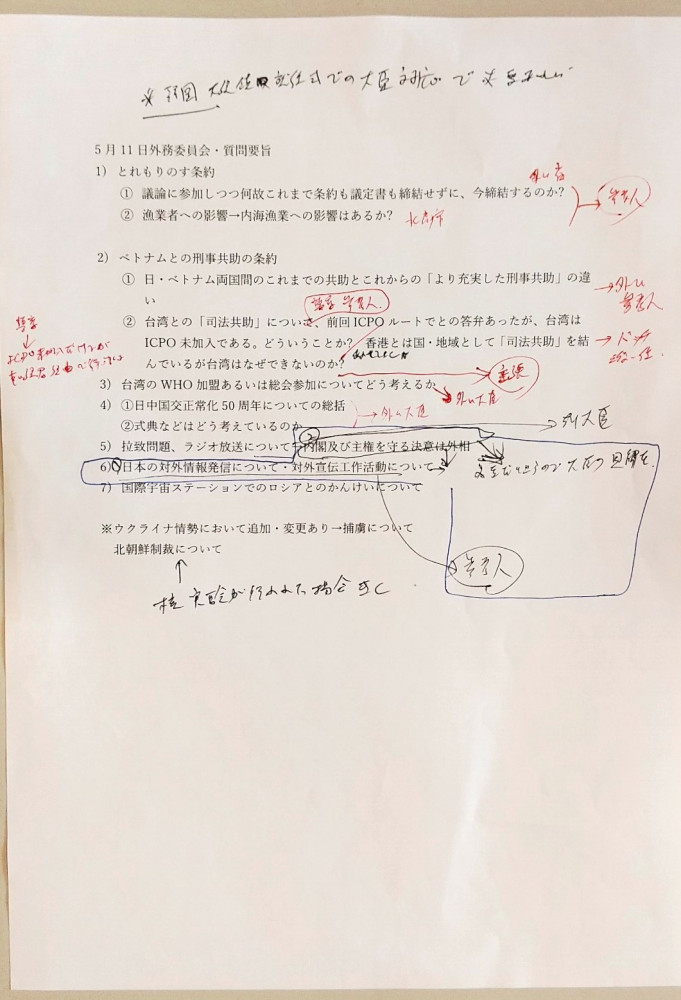 ※韓国大統領就任式での大臣対応で
5月11日外務委員会・質問要旨
1) とれもりのす条約
① 議論に参加しつつ何故これまで条約も議定書も締結せずに、今締結するのか?
② 漁業者への影響→内海漁業への影響はあるか?
水産庁
参考人
2) ベトナムとの刑事共助の条約
① 日・ベトナム両国間のこれまでの共助とこれからの「より充実した刑事共助」の違
い
→外ム
参考人
② 台湾との「司法共助」についさ、前回 ICPO ルートでとの答弁あったが、台湾は
ICPO 未加入である。どういうことか? 香港とは国・地域として「司法共助」を結
んでいるが台湾はなぜできないのか?
3) 台湾の WHO 加盟あるいは総会参加についてどう考えるか
外ム大臣
4) ①日中国交正常化 50 周年についての総括
②式典などはどう考えているのか
外ム大臣
5) 拉致問題、ラジオ放送について→内閣及び主権を守る決意は外相
大臣
6) 日本の対外情報発信について・対外宣伝工作活動について
参考人
7) 国際宇宙ステーションでのロシアとのかんけいについて
※ウクライナ情勢において追加・変更あり→捕虜について
北朝鮮制裁について
核実験が行われた場合